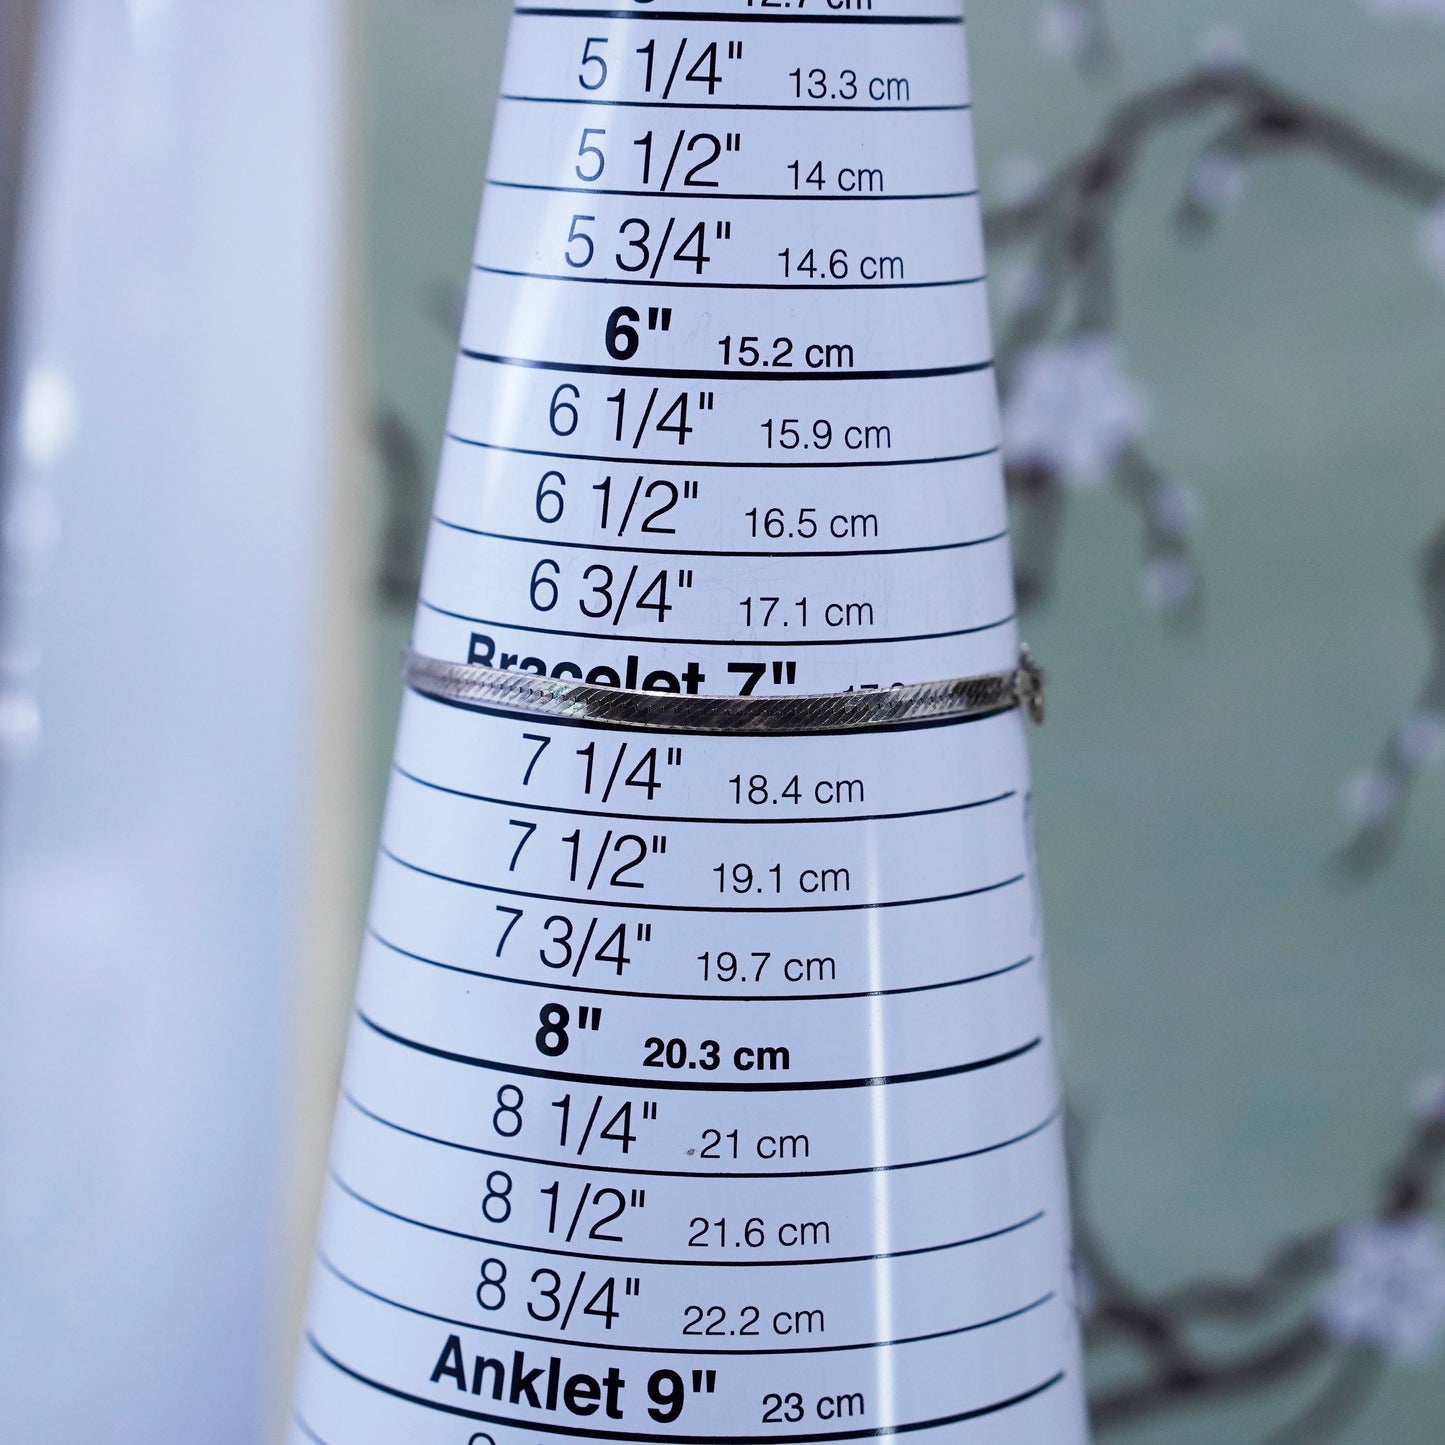 12.7 cm
5 1/4" 13.3 cm
5 1/2" 14 cm
5 3/4" 14.6 cm
6" 15.2 cm
6 1/4" 15.9 cm
6 1/2" 16.5 cm
6 3/4" 17.1 cm
Bracelet 7"
7 1/4" 18.4 cm
7 1/2" 19.1 cm
7 3/4" 19.7 cm
8" 20.3 cm
8 1/4" 21 cm
8 1/2" 21.6 cm
8 3/4" 22.2 cm
Anklet 9" 23 cm